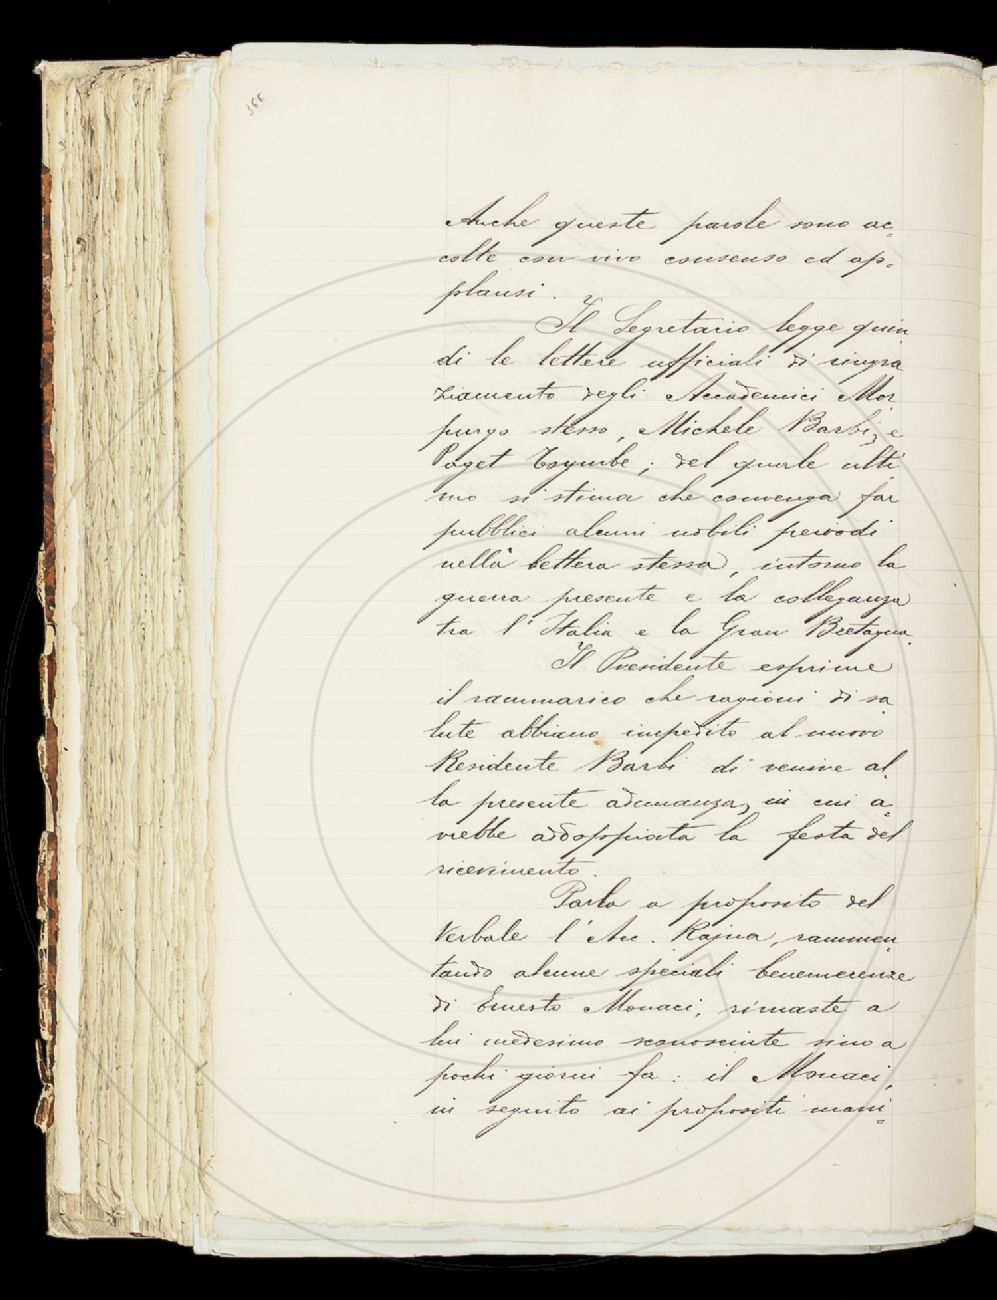 366
Anche queste parole sono ac=
colte con vivo consenso ed ap=
plausi.
Il Segretario legge quin
di le lettere ufficiali di ringra
ziamento degli Accademici Mor
purgo stesso, Michele Barbi, e
Paget Toynbe; del quale ulti
mo si stima che convenga far
pubblici alcuni nobili periodi
nella lettera stessa, intorno la
guerra presente e la colleganza
tra l'Italia e la Gran Bretagna.
Il Presidente esprime
il rammarico che ragioni di sa
lute abbiano impedito al nuovo
Residente Barbi di venire al
la presente adunanza, in cui a
vrebbe addoppiata la festa del
ricevimento.
Parla a proposito del
Verbale l'Acc. Rajna, rammen
tando alcune speciali benemerenze
di Ernesto Monaci, rimaste a
lui medesimo sconosciute sino a
pochi giorni fa: il Monaci,
in seguito ai propositi mani=